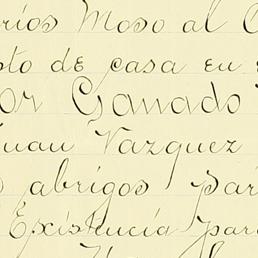 rios Moso al
to de casa en
or Ganado
Juan Vazquez
abrigos par
Existencia para